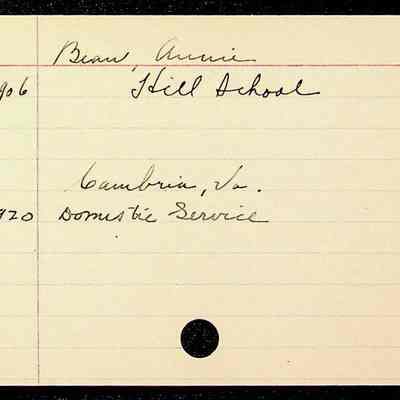 Bean, Annie
906 Hill School
Cambria, Va.
920 Domestic Service